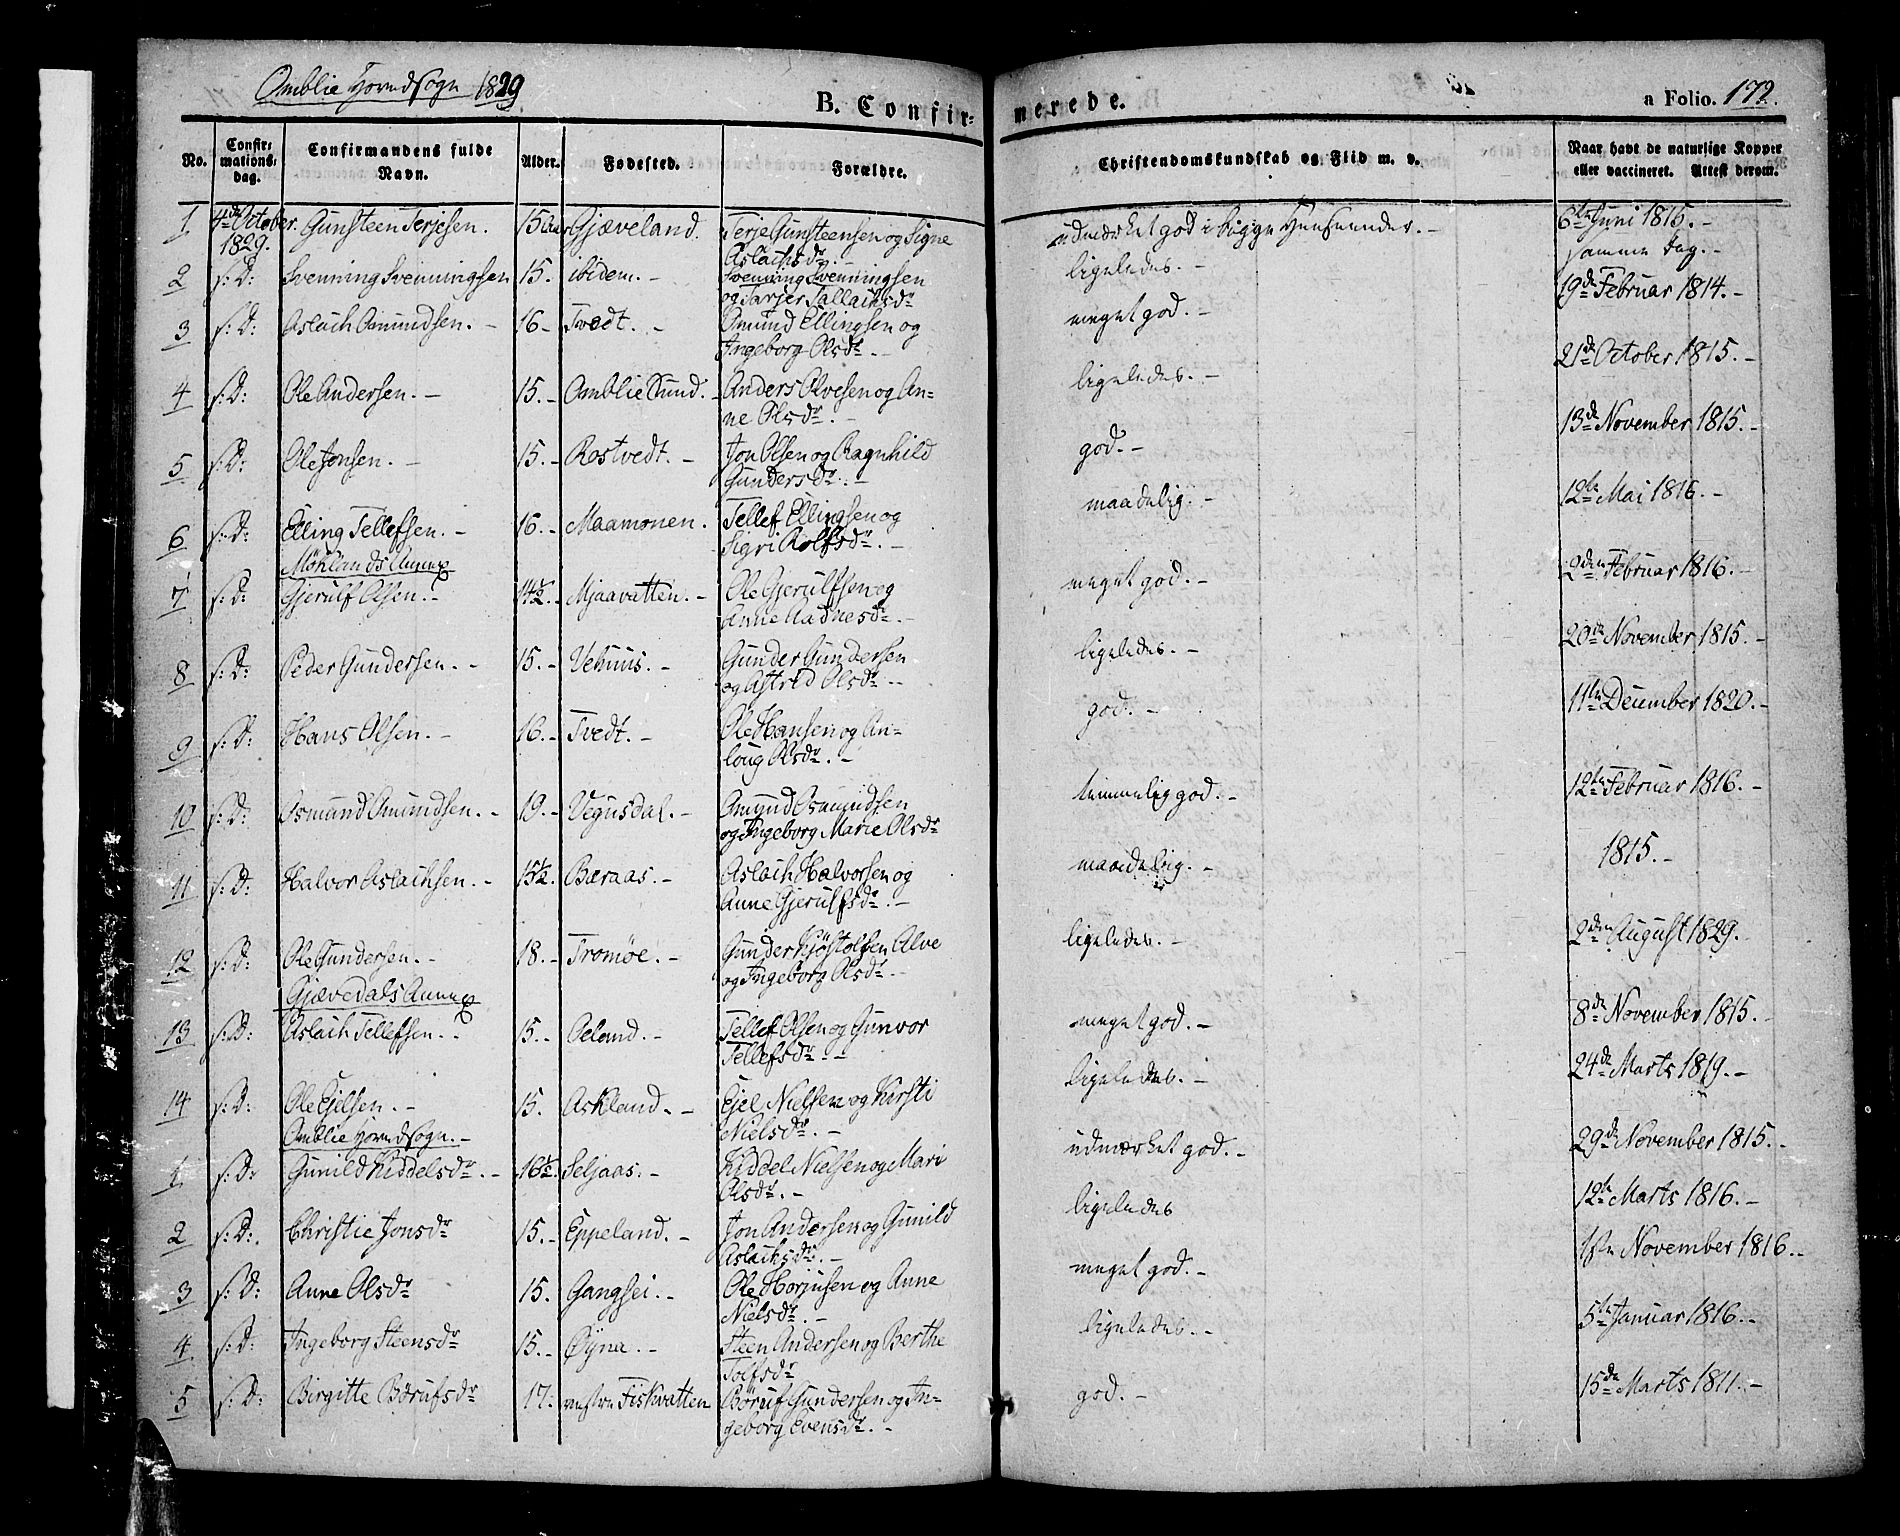 Omblie Hovedsogn 1829
B. Confirmerede.
a Folio. 172.
No. Confirmations-dag. Confirmandens fulde Navn. Alder. Fødested. Forældre. Christendomskundskab og Flid m. v. Naar havt de naturlige Kopper eller vaccineret. Attest derom.
1 4de October 1829. Gunsteen Terjesen. 15 Gjæveland. Terje Gunsteensen og Signe Aslachsdr. – udmærket god i begge Henseender. – 6te Juni 1815. –
2 s: D: Svenning Svenningsen 15. ibidem. – Svenning Svenningsen og Tarjer Tallachsdr ligeledes. – samme Dag. –
3 s: D: Aslach Omundsen. – 16 – Tvedt. – Omund Ellingsen og Ingeborg Olsdr. – meget god. – 19de Februar 1814. –
4 s: D: Ole Andersen. – 15. – Omblie Sund. – Anders Olvesen og Anne Olsdr. – ligeledes. – 21de October 1815. –
5 s: D: Ole Jonsen. – 15. – Rostvedt. – Jon Olsen og Ragnhild Gundersdr. – god. – 13de November 1815. –
6 s: D: Elling Tellefsen. – 16. – Maamonen. Tellef Ellingsen og Sigri Rolfsdr. – maadelig. – 12te Mai 1816. –
Møklands Annex
7 s: D: Gjerulf Olsen. – 14½. – Mjaavatten. – Ole Gjerulfsen og Anne Aadnesdr. – meget god. – 2den Februar 1816. –
8 s: D: Peder Gundersen. – 15. – Vehuus. – Gunder Gundersen og Astrid Olsdr – ligeledes. – 20de November 1815. –
9 s: D: Hans Olsen. – 16. – Tvedt. – Ole Hansen og Anloug Olsdr. – god. – 11te December 1820. –
10 s: D: Osmund Omundsen. – 19. – Vegusdal. – Omund Osmundsen og Ingeborg Marie Olsdr temmelig god. – 12te Februar 1816. –
11 s: D: Halvor Aslachsen. – 15½. Bæraas. – Aslach Halvorsen og Anne Gjerulfsdr. – maadelig. – 1815. –
12 s: D: Ole Gundersen. – 18. – Tromöe. – Gunder Kjöstolfsen Alve og Ingeborg Olsdr. – ligeledes. – 2den August 1829. –
Gjævedals Annex
13 s: D: Aslach Tellefsen. – 15. – Oeland. – Tellef Olsen og Gunvor Tellefsdr. – meget god. – 8de November 1815. –
14 s: D: Ole Ejelsen. – 15. Askland. – Ejel Nielsen og Kirsti Nielsdr. – ligeledes. – 24de Marts 1819. –
Omblie Hovedsogn. –
1 s: D: Gunild Kiddelsdr. – 16½. Seljaas. – Kiddel Nielsen og Mari Olsdr. – udmærket god. – 29de November 1815. –
2 s: D: Christie Jonsdr 15. – Eppeland. – Jon Andersen og Gunild Aslachsdr. – ligeledes 12te Marts 1816. –
3 s: D: Anne Olsdr 15. Gangsei. – Ole Horjusen og Anne Nielsdr. – meget god. – November 1816. –
4 s: D: Ingeborg Steensdr 15. – Øyna. – Steen Andersen og Berthe Tolfsdr ligeledes. – 5te Januar 1816. –
5 s: D: Birgitte Børufsdr 17: Fiskvatten Børuf Gundersen og Ingeborg Evensdr. – god. – 15de Marts 1811. –